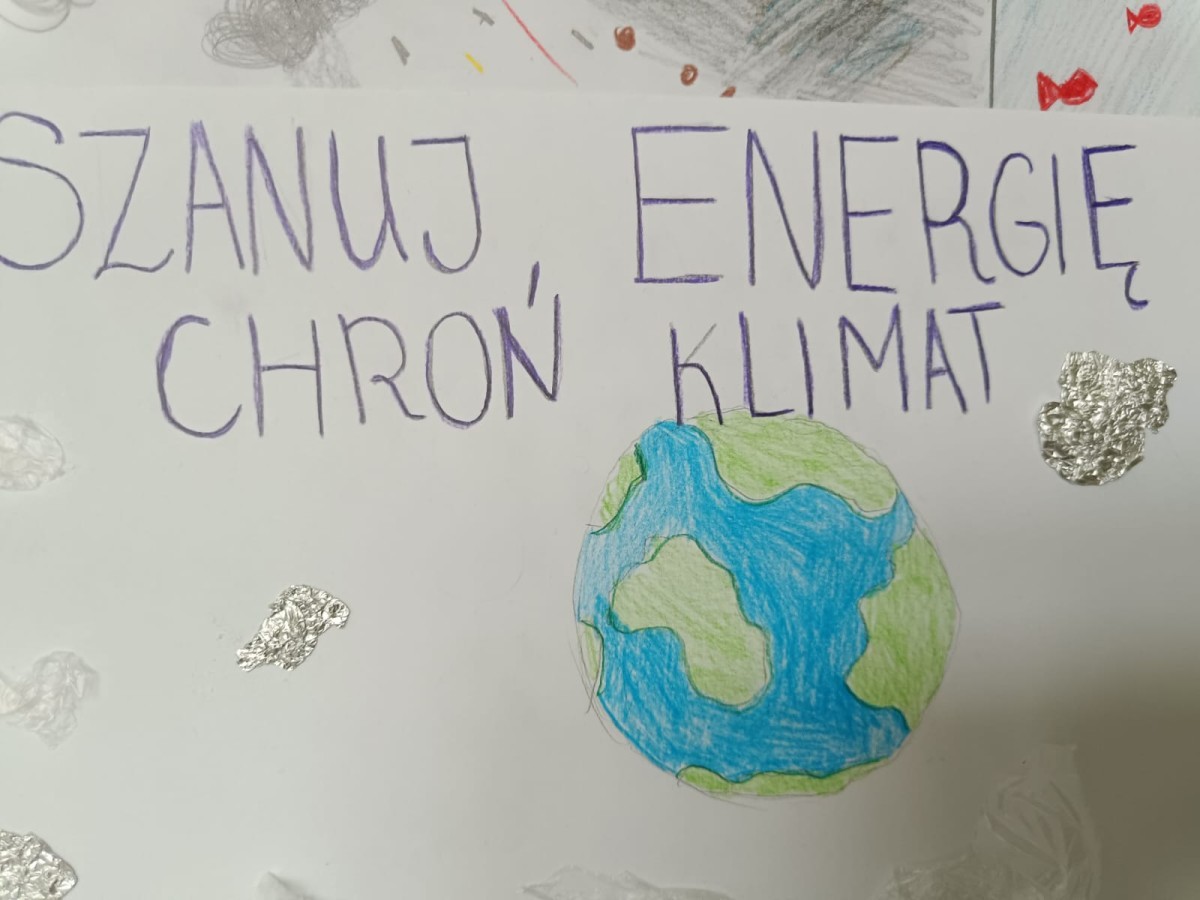 SZANUJ ENERGIĘ
CHROŃ KLIMAT